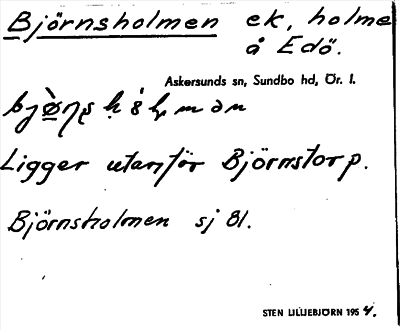 Björnsholmen ek, holme
å Edö.
Askersunds sn, Sundbo hd, Ör. l.
Ligger utanför Björnstorp.
Björnsholmen sj 81.
STEN LILLIEBJÖRN 1954.